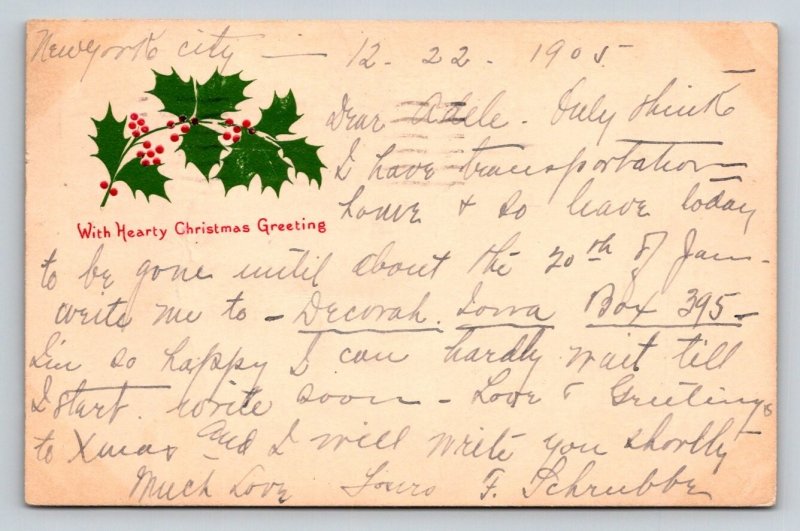 New York city — 12 - 22 - 1905
Dear Adele - Only think
I have transportation
home & so leave today
With Hearty Christmas Greeting
to be gone until about the 20th of Jan -
write me to - Decorah, Iowa Box 395 -
I'm so happy I can hardly wait till
I start. write soon - Love & Greetings
to Xmas and I will write you shortly
Much Love Yours F. Schrubbe